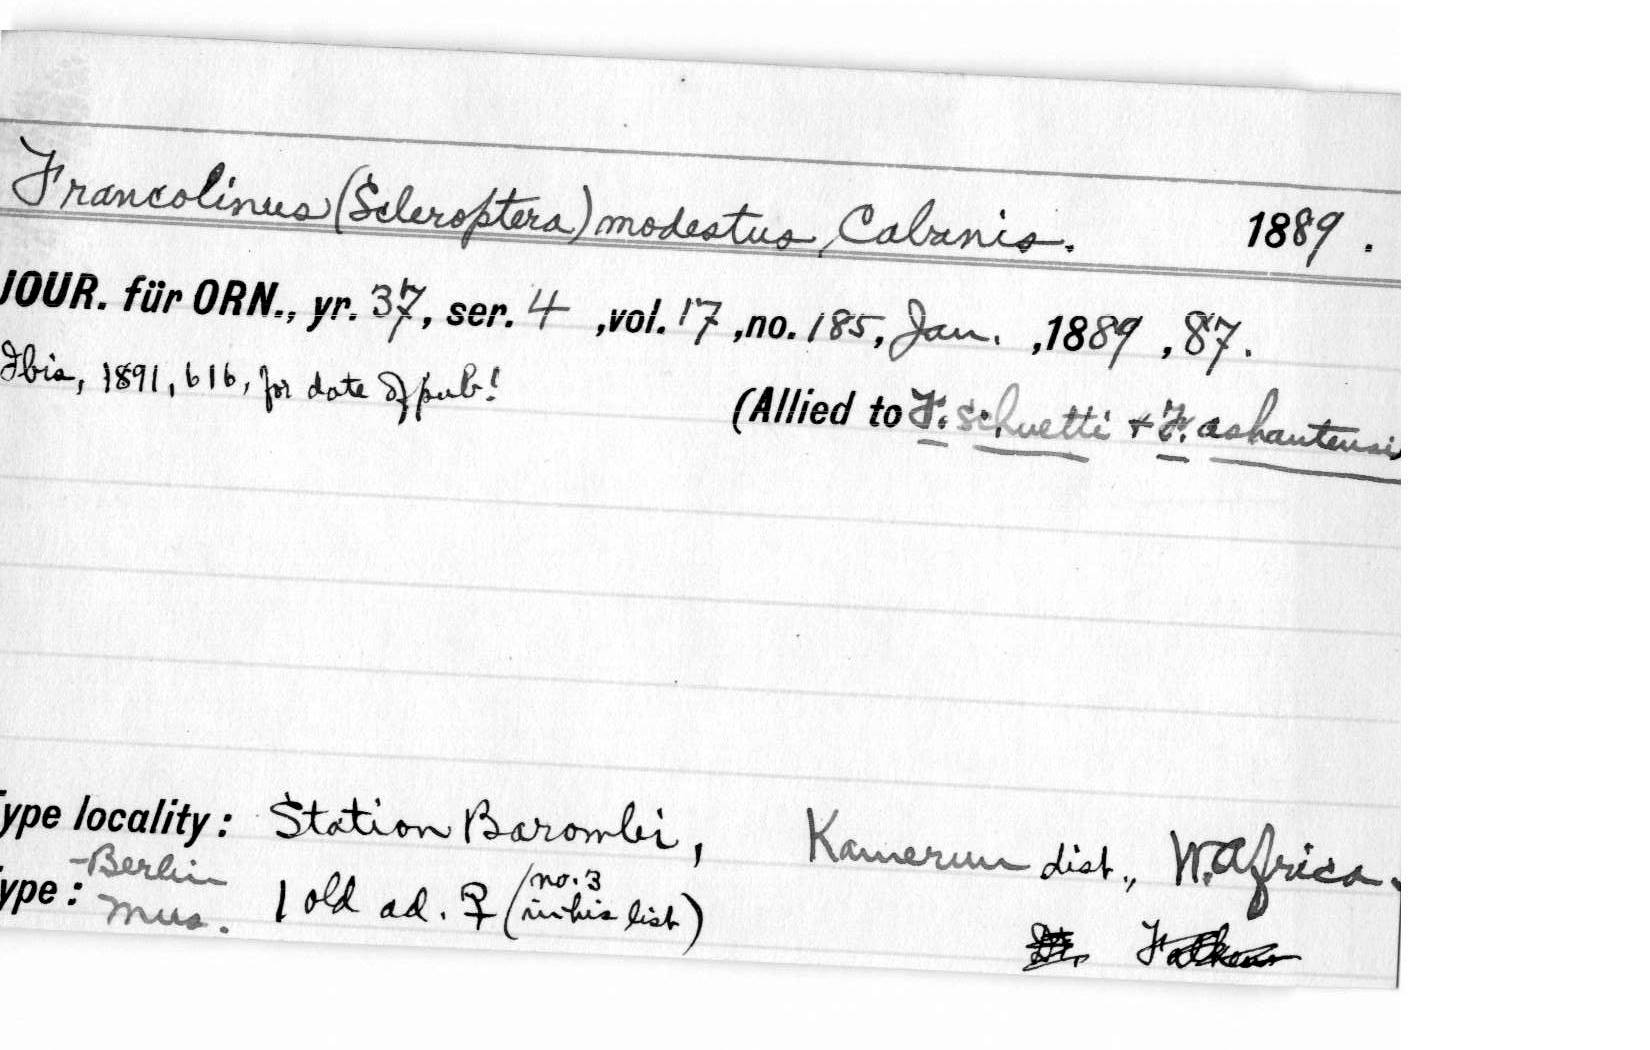 Francolinus (Scleroptera) modestus, Cabanis. 1889.
JOUR. für ORN., yr. 37, ser. 4, vol. 17, no. 185, Jan., 1889, 87.
Ibis, 1891, 616, for date of pub!
(Allied to F. schuetti + F. ashantensi
ype locality: Station Barombi, Kamerun dist., W. Africa.
-Berlin
ype: Mus. 1 old ad. ♀ (no. 3 in his list)